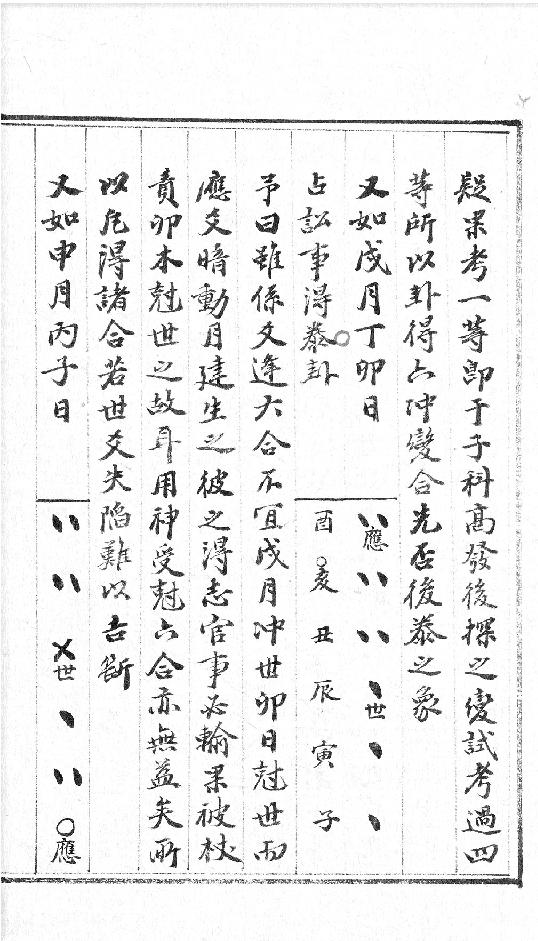 疑果考一等即于子科高發後探之變試考過四
等所以卦得六冲變合先否後泰之象
又如戌月丁卯日
占訟事得泰卦
應 世
酉 亥 丑 辰 寅 子
予曰雖係爻逢六合不宜戌月冲世卯日尅世而
應爻暗動月建生之彼之得志官事必輸果被杖
責卯木尅世之故耳用神受尅六合亦無益矣所
以凢得諸合若世爻失陷難以吉斷
又如申月丙子日
世 應